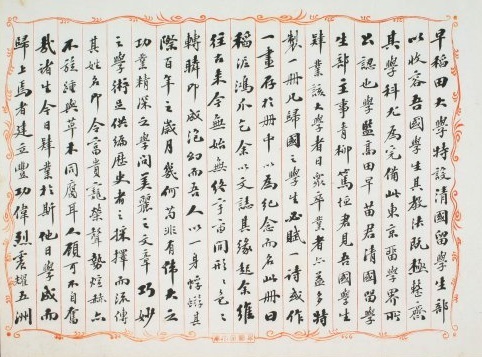 早稻田大學特設清國留學生部
以收容吾國學生其教法既極整齊
其學科尤為完備此東京留學界所
公認也學監高田早苗君清國留學
生部主事青柳篤恒君見吾國學生
肄業該大學者日眾卒業者亦益多特
製一冊凡歸國之學生必賦一詩或作
一畫存於冊中以為紀念而名此冊曰
稻泥鴻爪乞余以文誌其緣起余維
往古來今無始無終宇宙間形〻色〻
轉瞬即成泡幻而吾人以一身蜉蝣其
際百年之歲月幾何苟非有偉大之
功業精深之學問美麗之文章巧妙
之學術足供編歷史者之採擇而流傳
其姓名即令富貴寵榮聲勢烜赫亦
不旋踵與草木同腐耳人顧可不自奮
哉諸生今日肄業於斯他日學成而
歸上焉者建立豐功偉烈震耀五洲